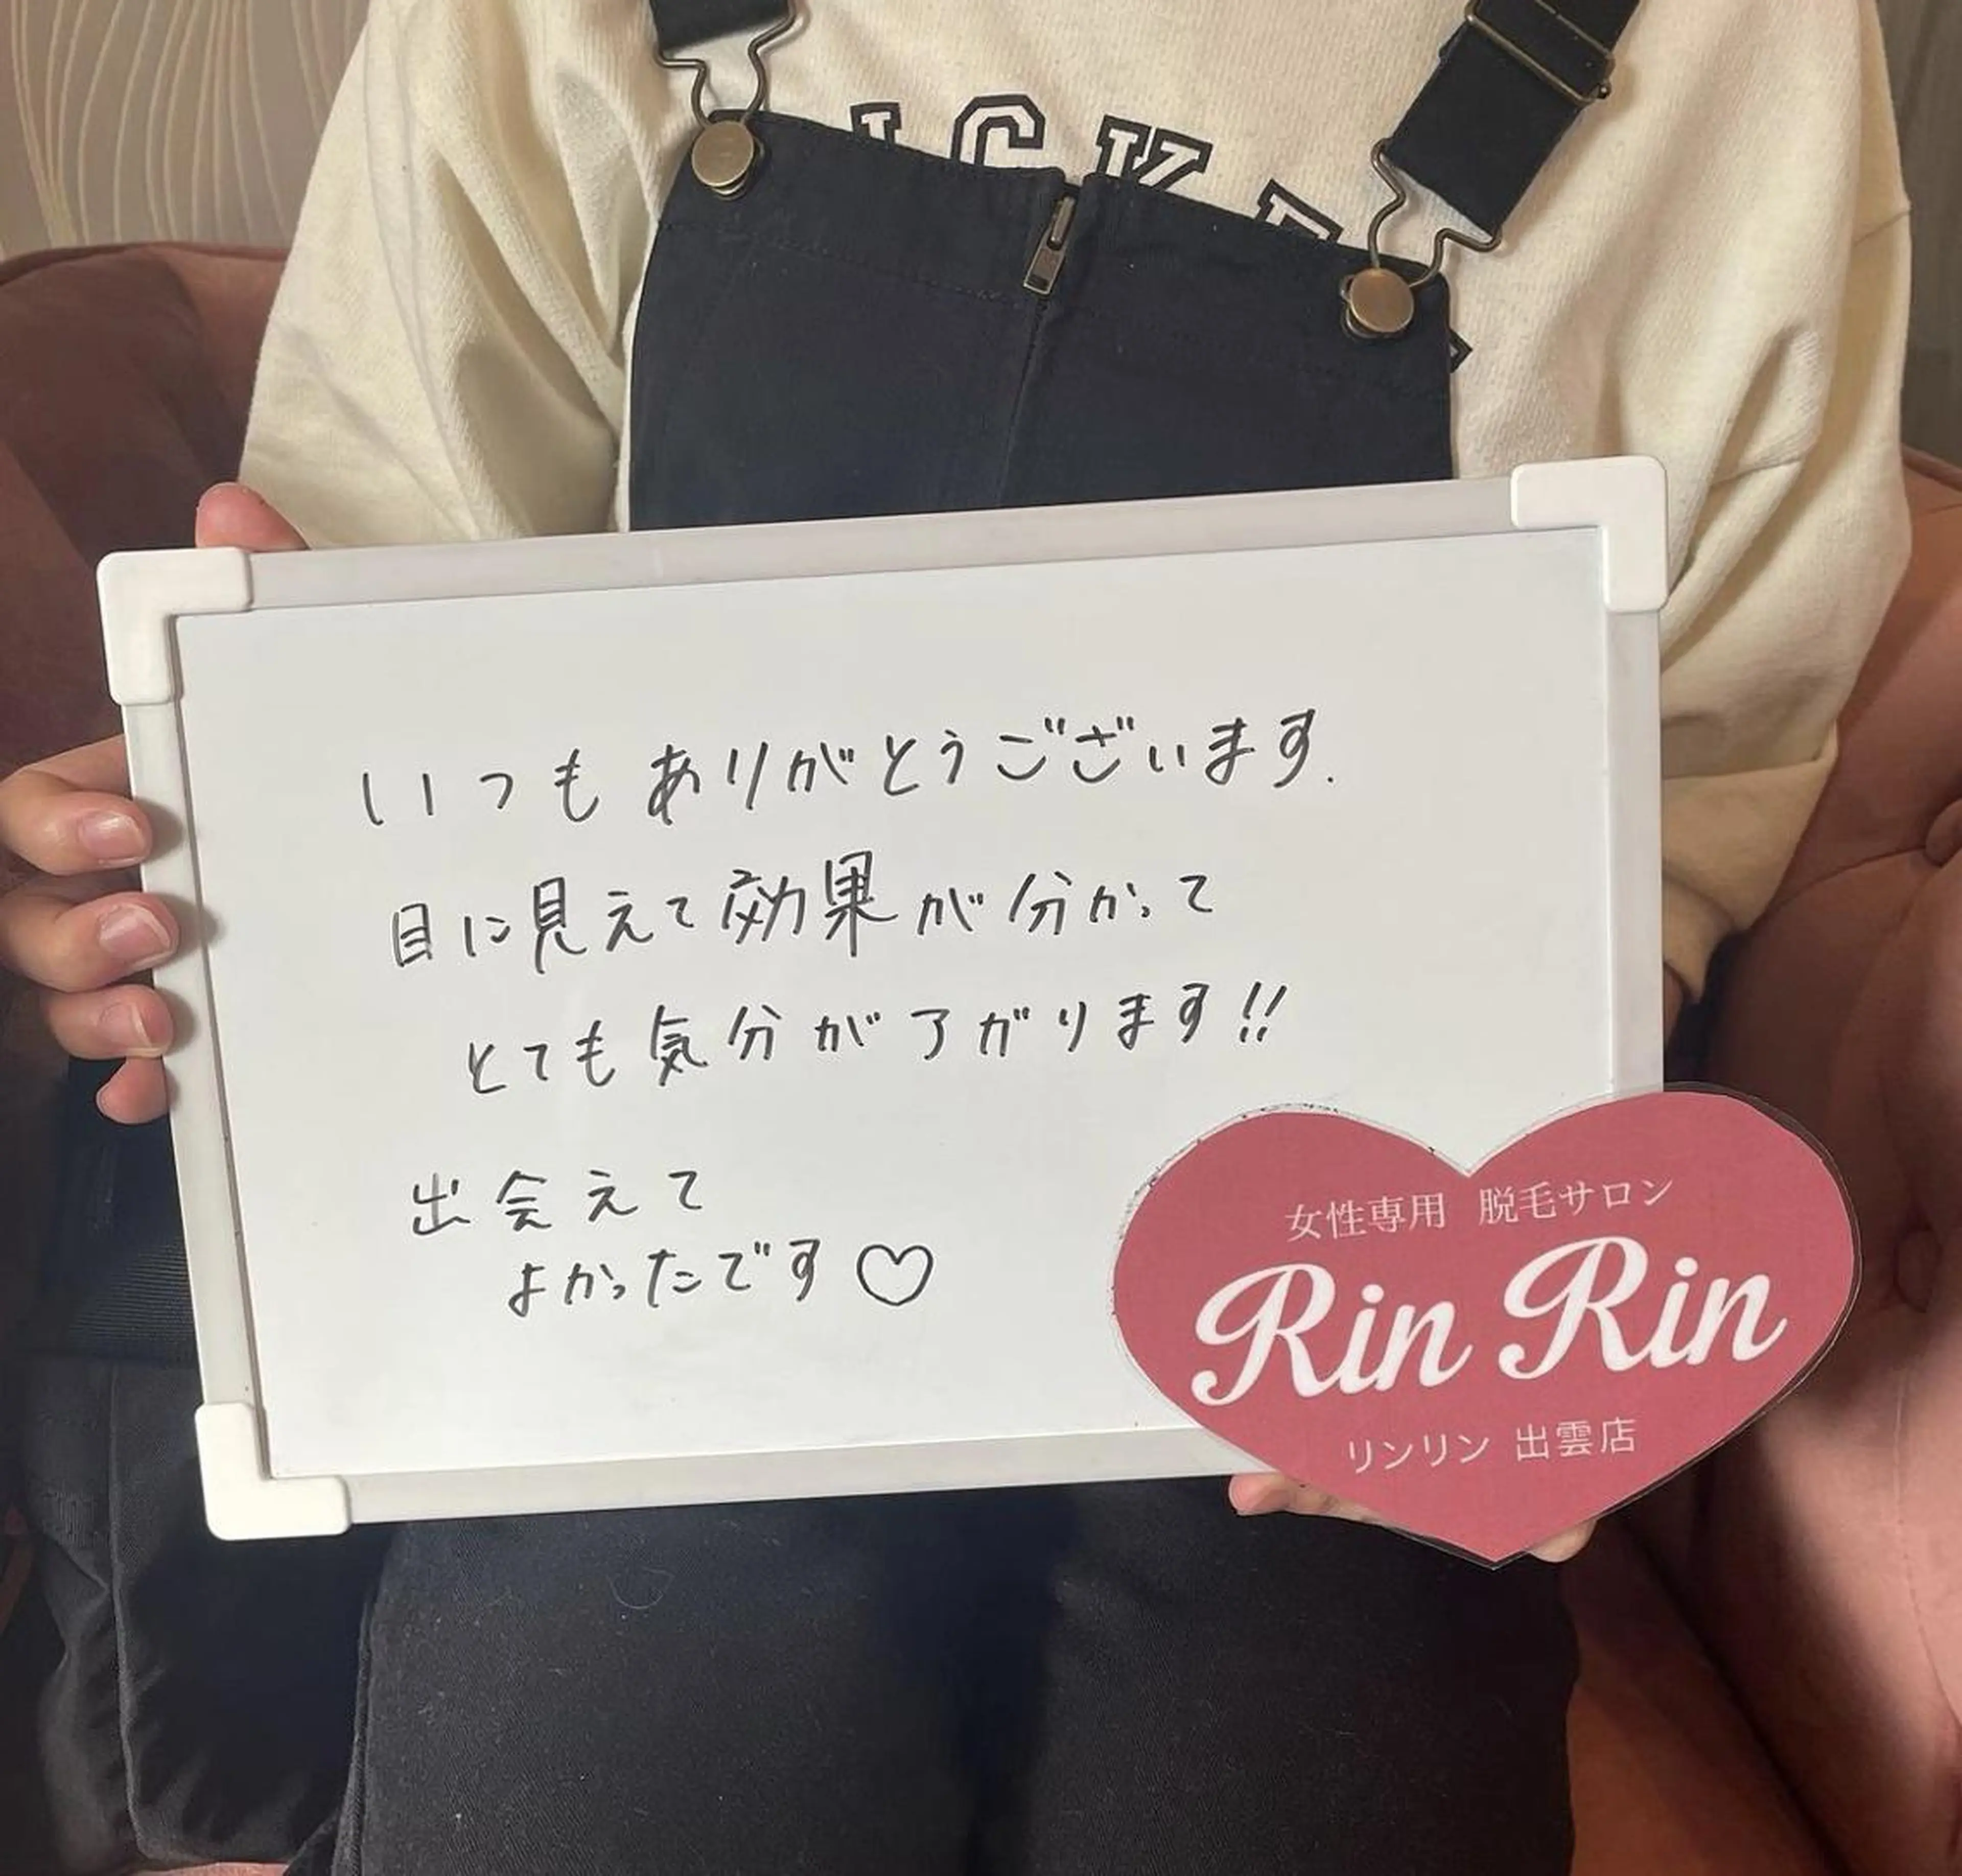 ICKE
いつもありがとうございます.
目に見えて効果が分かって
とても気分がアガります!!
出会えて
よかったです♡
女性専用 脱毛サロン
Rin Rin
リンリン 出雲店